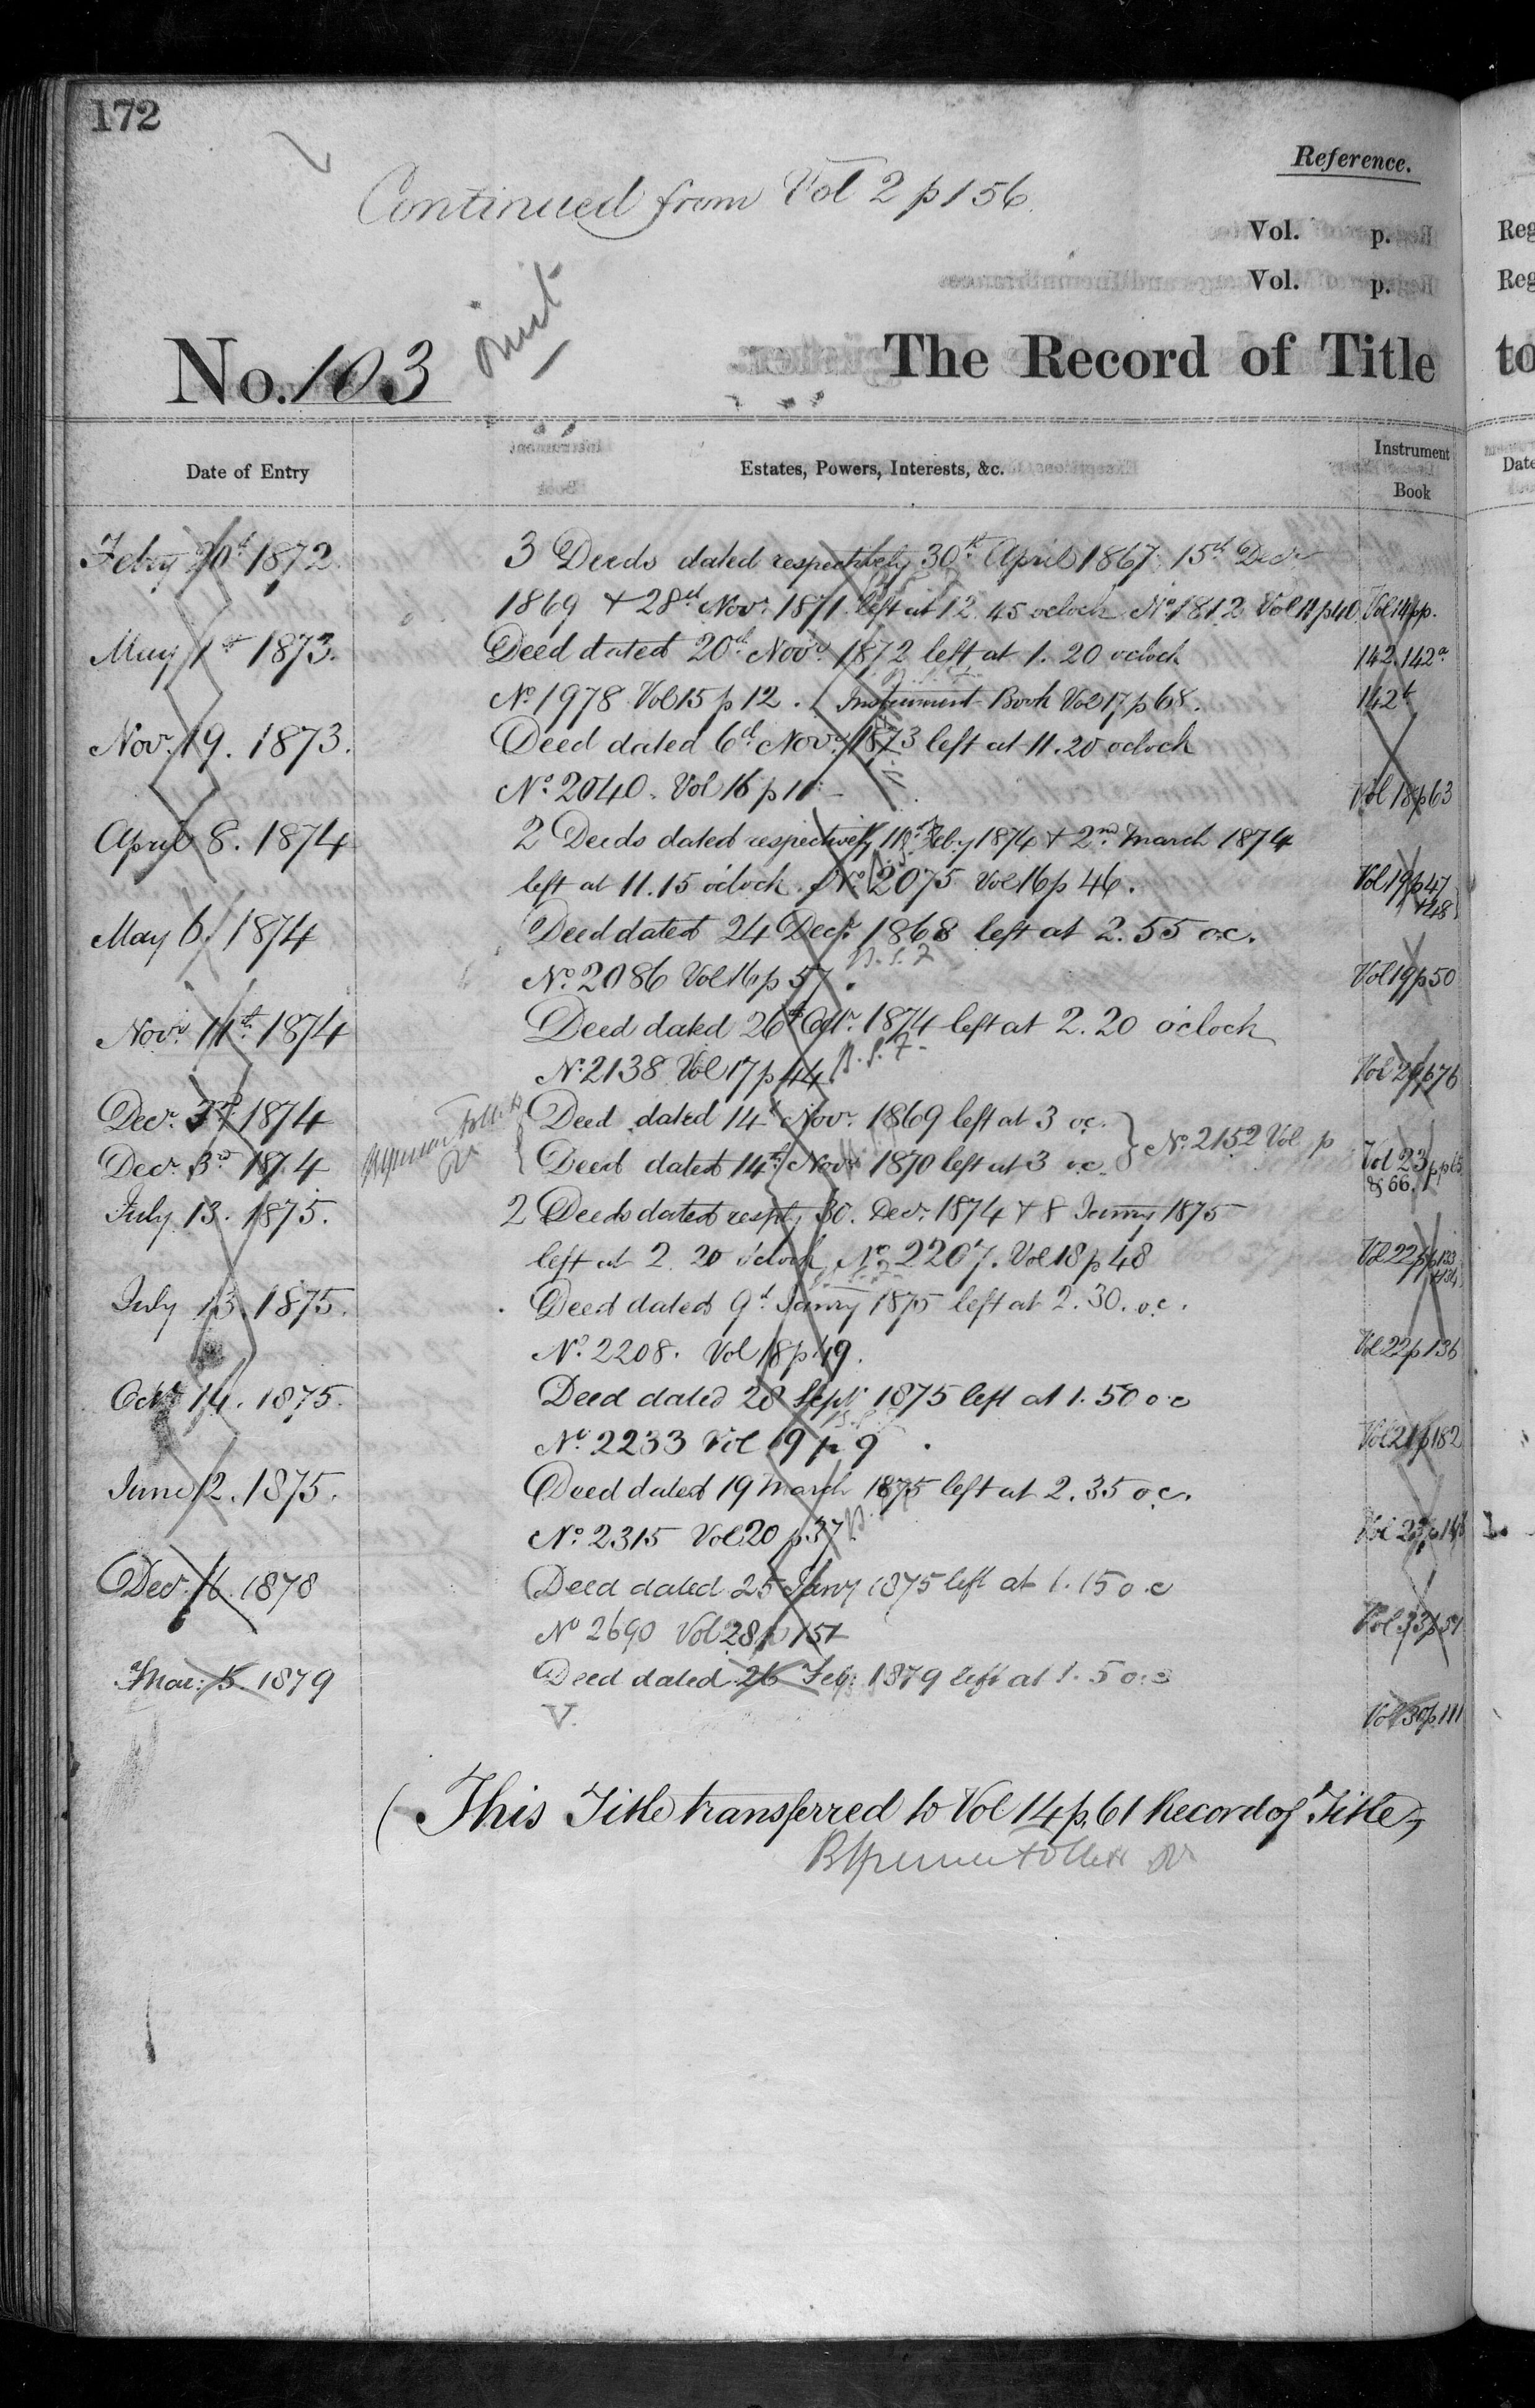 172
Reference.
Continued from Vol 2 p 156.
Vol. p.
Vol. p.
No. 103
The Record of Title
Date of Entry Estates, Powers, Interests, &c. Instrument Book
Feby 20th 1872 3 Deeds dated respectively 30th April 1867. 15th Decr
1869 + 28th Novr. 1871. left at 12.45 oclock No. 1812 Vol 14 p 40 Vol 14 pp.
May 1st 1873. Deed dated 20th Novr. 1872 left at 1.20 oclock 142. 142a
No. 1978 Vol 15 p 12. Instrument Book Vol 17 p 68. 142b
Nov. 19. 1873. Deed dated 6th Novr. 1873 left at 11.20 oclock
No. 2040. Vol 16 p 11 Vol 18 p 63
April 8. 1874 2 Deeds dated respectively Feby 1874 + 2nd March 1874
left at 11.15 o'clock. No. 2075 Vol 16 p 46. Vol 19 p 47 +48
May 6. 1874 Deed dated 24 Decr. 1868 left at 2.55 o.c.
No. 2086 Vol 16 p 57. Vol 19 p 50
Novr. 11th 1874 Deed dated 26th Octr. 1874 left at 2.20 o'clock
No. 2138 Vol 17 p 44. Vol 20 p 76
Decr. 3rd 1874 Deed dated 14th Novr. 1869 left at 3 o.c.
Decr. 3rd 1874 Deed dated 14th Novr. 1870 left at 3 o.c. No. 2152 Vol p Vol 23 pp 65 & 66.
July 13. 1875. 2 Deeds dated respty 30. Decr. 1874 + 8 Janry 1875
left at 2.20 o'clock No. 2207. Vol 18 p 48 Vol 22 pp 133 +134
July 13. 1875. Deed dated 9th Janry 1875 left at 2.30. o.c.
No. 2208. Vol 18 p 49. Vol 22 p 136
Octr 14. 1875. Deed dated 28 Septr 1875 left at 1.50 o.c
No. 2233 Vol 19 p 9. Vol 21 p 182
June 12. 1875. Deed dated 19 March 1875 left at 2.35 o.c.
No. 2315 Vol 20 p 37
Decr. 16. 1878 Deed dated 25 Janry 1875 left at 1.15 o.c
No 2690 Vol 28 p 151 Vol 33 p 51
Mar: 5. 1879 Deed dated 26 Feb: 1879 left at 1.5 o.c
V. Vol 30 p 111
(This Title transferred to Vol. 14 p. 61 Record of Title)